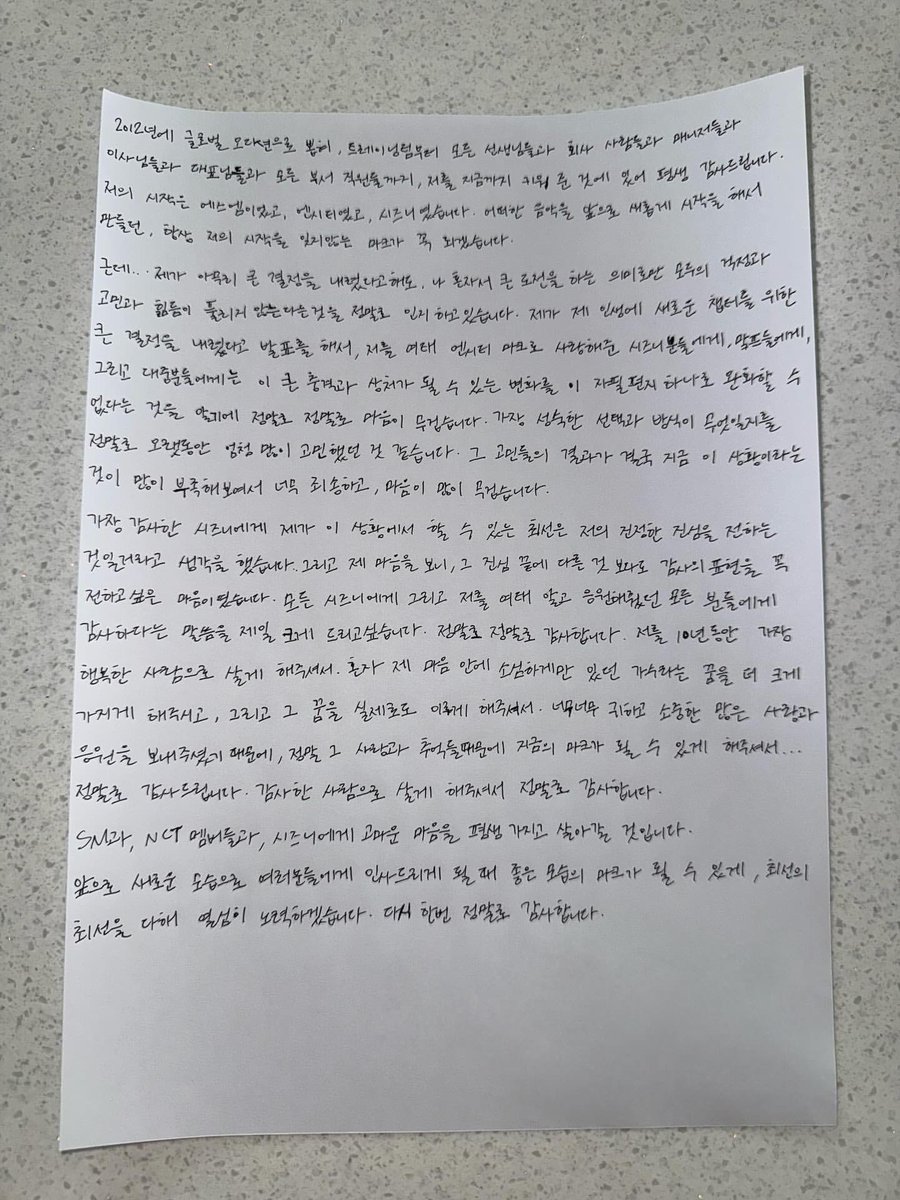 2012년에 글로벌 오디션으로 뽑혀, 트레이닝팀부터 모든 선생님들과 회사 사람들과 매니저들과
이사님들과 대표님들과 모든 부서 직원들까지, 저를 지금까지 키워 준 것에 있어 평생 감사드립니다.
저의 시작은 에스엠이었고, 엔시티였고, 시즈니였습니다. 어떠한 음악을 앞으로 새롭게 시작을 해서
만들던, 항상 저의 시작을 잊지않는 마크가 꼭 되겠습니다.
근데... 제가 아무리 큰 결정을 내렸다고해도, 나 혼자서 큰 도전을 하는 의미로만 모두의 걱정과
고민과 힘듦이 풀리지 않는다는것을 정말로 인지하고있습니다. 제가 제 인생에 새로운 챕터를 위한
큰 결정을 내렸다고 발표를 해서, 저를 여태 엔시티 마크로 사랑해준 시즈니분들에게, 맠프들에게,
그리고 대중분들에게는 이 큰 충격과 상처가 될 수 있는 변화를 이 자필편지 하나로 완화할 수
없다는 것을 알기에 정말로 정말로 마음이 무겁습니다. 가장 성숙한 선택과 방식이 무엇일지를
정말로 오랫동안 엄청 많이 고민했던 것 같습니다. 그 고민들의 결과가 결국 지금 이 상황이라는
것이 많이 부족해보여서 너무 죄송하고, 마음이 많이 무겁습니다.
가장 감사한 시즈니에게 제가 이 상황에서 할 수 있는 최선은 저의 진정한 진심을 전하는
것일거라고 생각을 했습니다. 그리고 제 마음을 보니, 그 진심 끝에 다른 것 보다도 감사의 표현을 꼭
전하고 싶은 마음이었습니다. 모든 시즈니에게 그리고 저를 여태 알고 응원해줬던 모든 분들에게
감사하다는 말씀을 제일 크게 드리고싶습니다. 정말로 정말로 감사합니다. 저를 10년동안 가장
행복한 사람으로 살게 해주셔서. 혼자 제 마음 안에 소심하게만 있던 가수라는 꿈을 더 크게
가지게 해주시고, 그리고 그 꿈을 실제로도 이루게 해주셔서. 너무너무 귀하고 소중한 많은 사랑과
응원을 보내주셨기 때문에, 정말 그 사랑과 추억들때문에 지금의 마크가 될 수 있게 해주셔서...
정말로 감사드립니다. 감사한 사람으로 살게 해주셔서 정말로 감사합니다.
SM과, NCT 멤버들과, 시즈니에게 고마운 마음을 평생 가지고 살아갈 것입니다.
앞으로 새로운 모습으로 여러분들에게 인사드리게 될 때 좋은 모습의 마크가 될 수 있게, 최선의
최선을 다해 열심히 노력하겠습니다. 다시 한번 정말로 감사합니다.